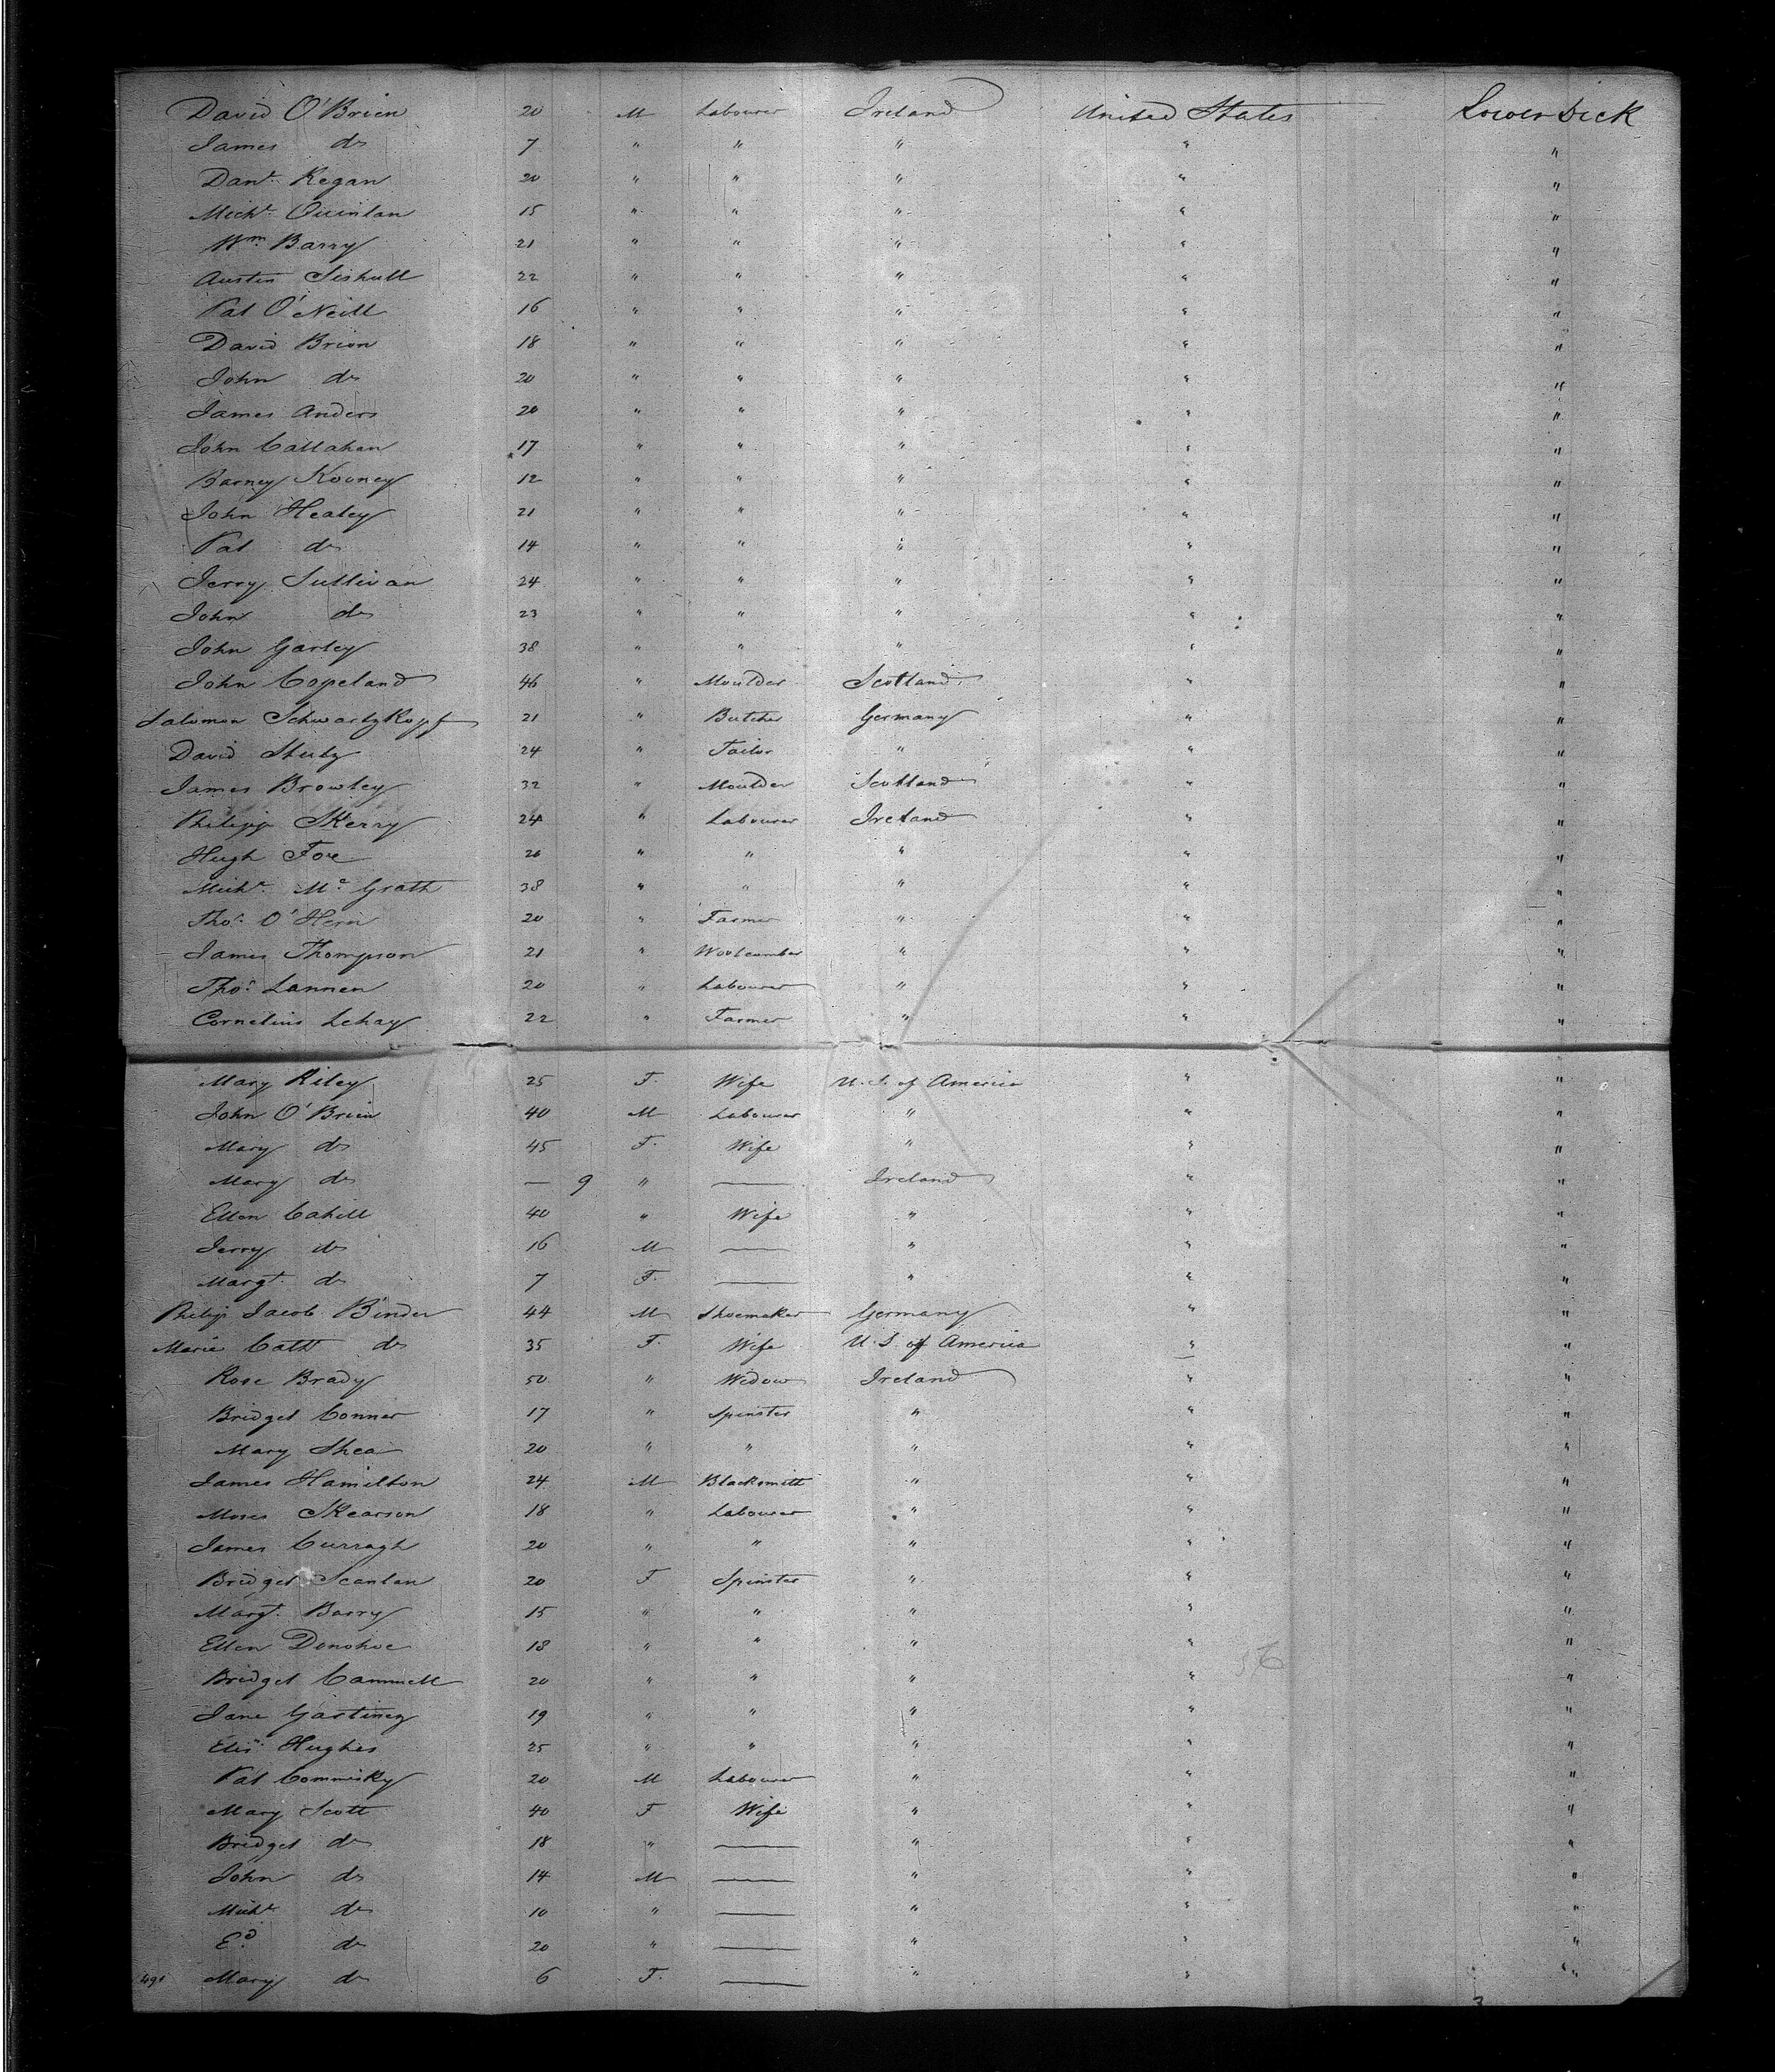 David O'Brien 20 M Labourer Ireland United States Lower Deck
James do 7 " " " " "
Danl. Regan 20 " " " " "
Michl. Quinlan 15 " " " " "
Wm. Barry 21 " " " " "
Austin 22 " " " " "
Pat O'Neill 16 " " " " "
David Brion 18 " " " " "
John do 20 " " " " "
James Anders 20 " " " " "
John Callahan 17 " " " " "
Barney Rooney 12 " " " " "
John Healey 21 " " " " "
Pat do 14 " " " " "
Jerry Sullivan 24 " " " " "
John do 23 " " " " "
John Garley 38 " " " " "
John Copeland 46 " Moulder Scotland " "
Salomon Schwartzkopf 21 " Butcher Germany " "
David 24 " Tailor " " "
James Browley 32 " Moulder Scotland " "
Philipp Skerry 24 " Labourer Ireland " "
Hugh Foxe 20 " " " " "
Michl. Mc. Grath 38 " " " " "
Thos. O'Hern 20 " Farmer " " "
James Thompson 21 " Woolcomber " " "
Thos. Lannen 20 " Labourer " " "
Cornelius Lehay 22 " Farmer " " "
Mary Riley 25 F. Wife U.S. of America " "
John O'Brien 40 M Labourer " " "
Mary do 45 F. Wife " " "
Mary do — 9 " — Ireland " "
Ellen Cahill 40 " Wife " " "
Jerry do 16 M — " " "
Margt. do 7 F. — " " "
Philip Jacob Binder 44 M Shoemaker Germany " "
Marie Cath do 35 F. Wife U.S. of America " "
Rose Brady 50 " Widow Ireland " "
Bridget Conner 17 " Spinster " " "
Mary Shea 20 " " " " "
James Hamilton 24 M Blacksmith " " "
Moses Skearson 18 " Labourer " " "
James Curragh 20 " " " " "
Bridget Scanlan 20 F Spinster " " "
Margt. Barry 15 " " " " "
Ellen Donohoe 18 " " " " "
Bridget Cammell 20 " " " " "
Jane Gartiney 19 " " " " "
Elis. Hughes 25 " " " " "
Pat Commisky 20 M Labourer " " "
Mary Scott 40 F Wife " " "
Bridget do 18 " — " " "
John do 14 M — " " "
Michl. do 10 " — " " "
Ed. do 20 " — " " "
491 Mary do 6 F. — " " "